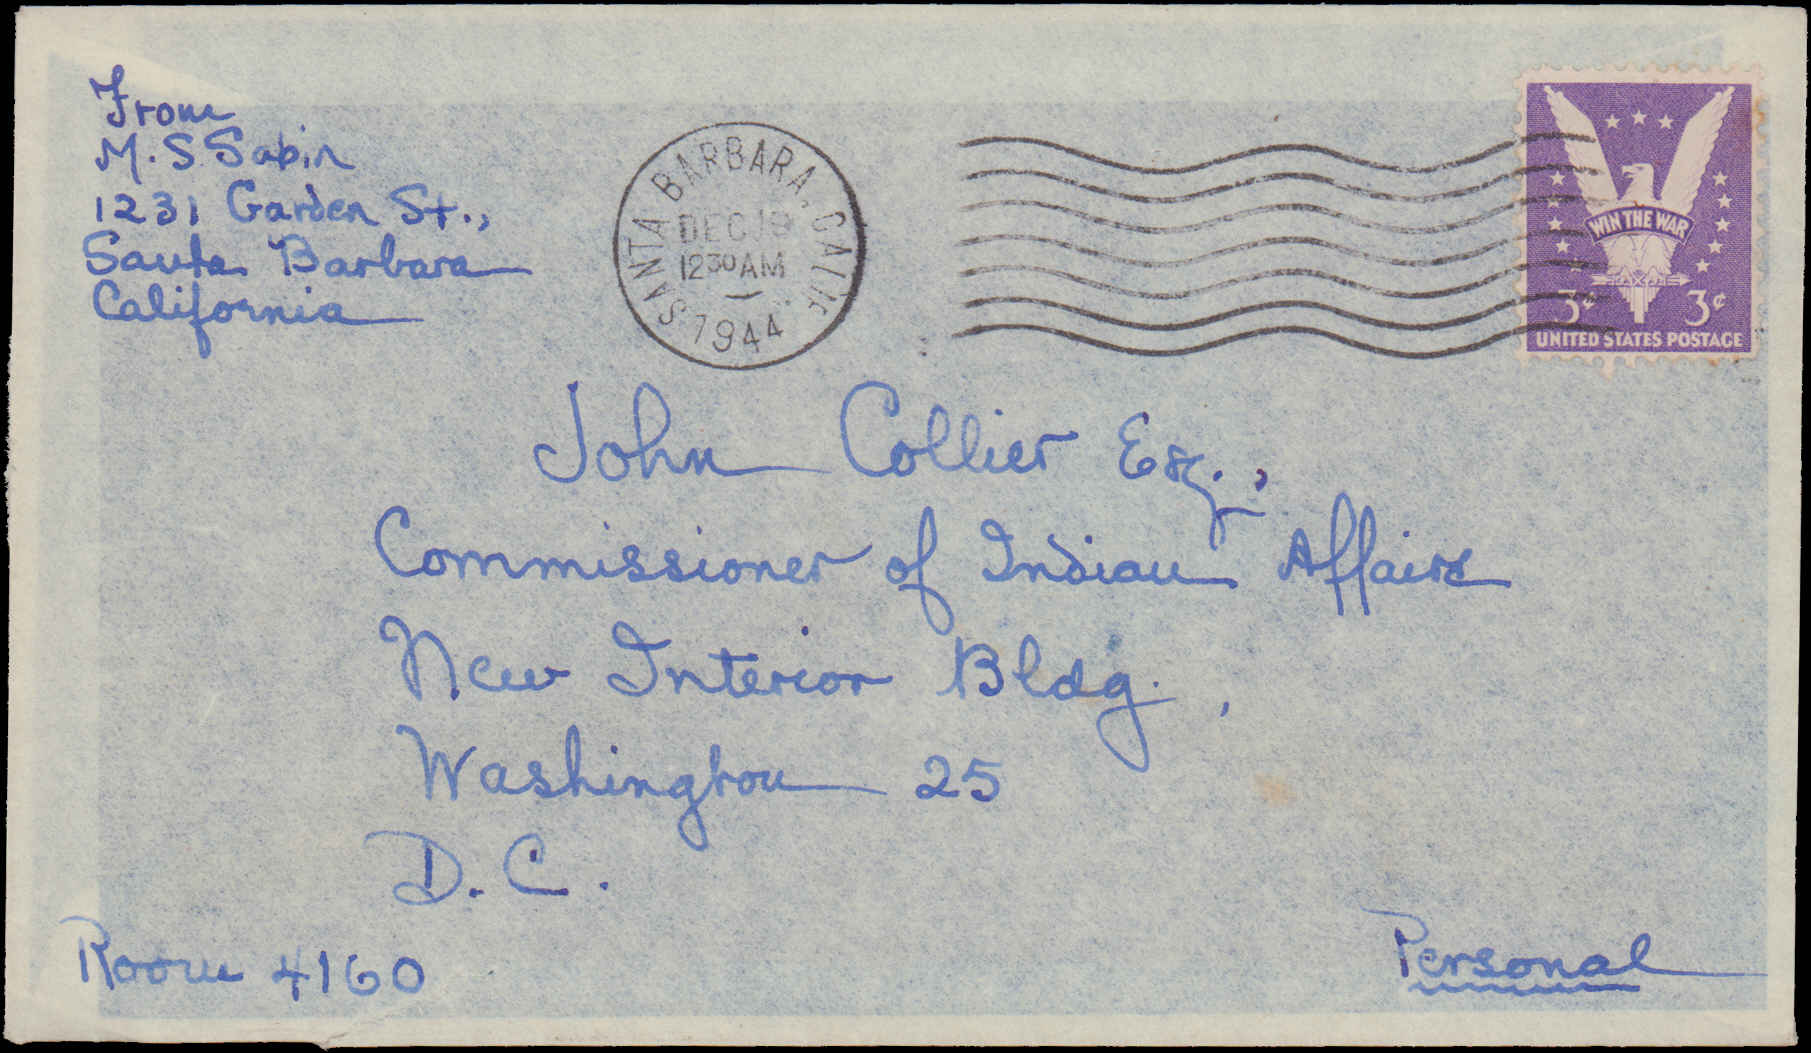 From
M. S. Sabin
1231 Garden St.,
Santa Barbara
California
SANTA BARBARA, CALIF.
DEC 19
12 30 AM
1944
WIN THE WAR
3¢ 3¢
UNITED STATES POSTAGE
John Collier Esq.,
Commissioner of Indian Affairs
New Interior Bldg.,
Washington 25
D. C.
Room 4160
Personal